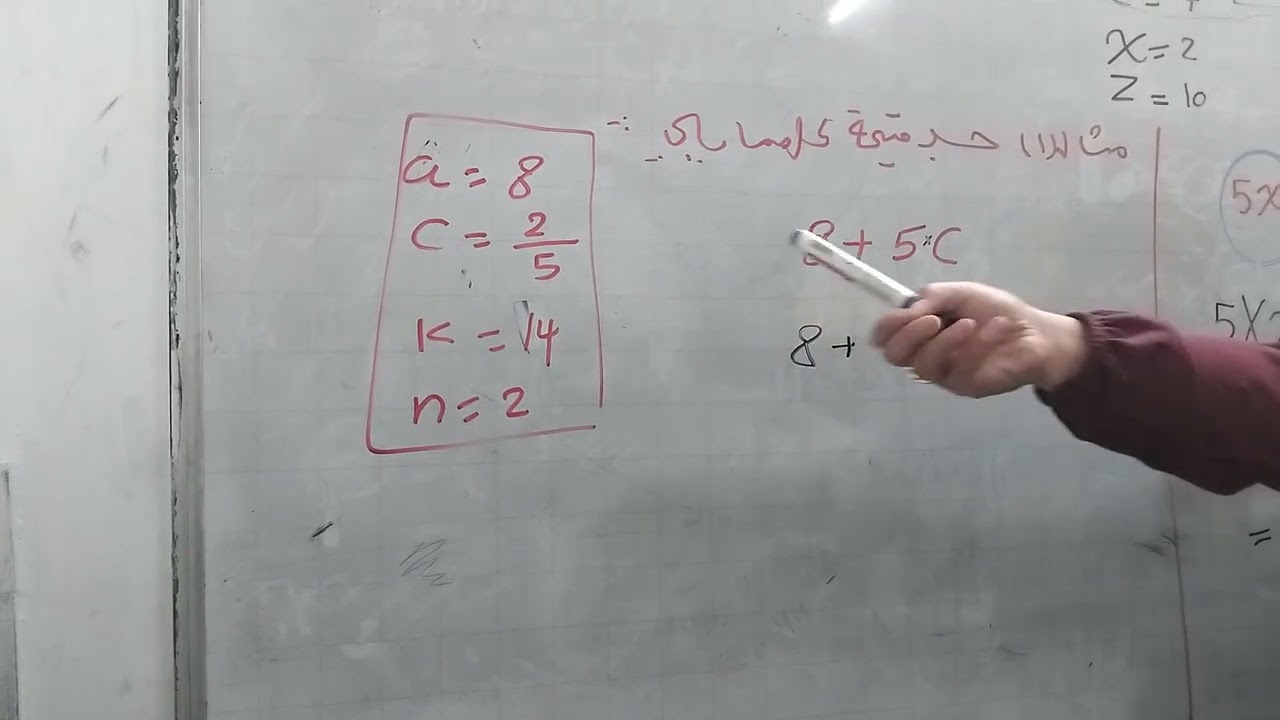 X = 2
Z = 10
جد قيمة كل مما يأتي :-
a = 8
C = 2/5
K = 14
n = 2
8 + 5×C
8 +
5X
5X
=